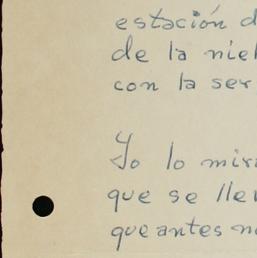 estación d
de la niel
con la ser
Yo lo mir
que se lle
que antes n